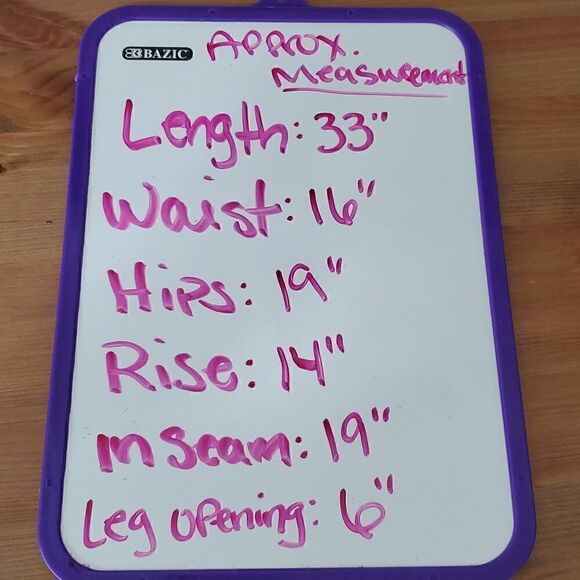 BAZIC
Approx.
Measurement
Length: 33"
Waist: 16"
Hips: 19"
Rise: 14"
In Seam: 19"
Leg Opening: 6"